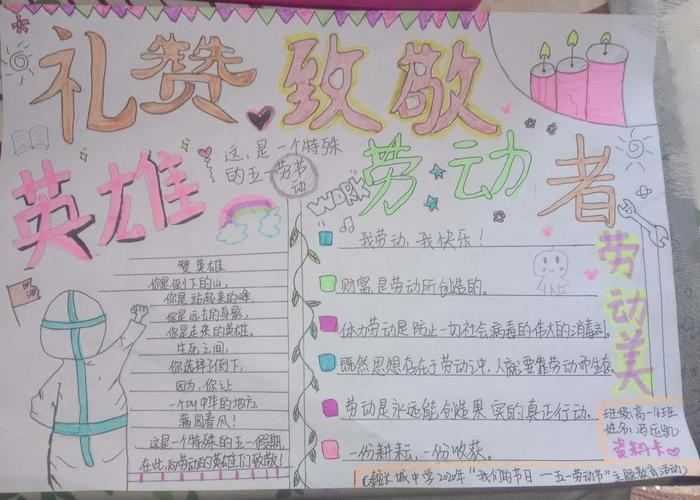 礼赞 致敬
英雄 劳动者
这,是一个特殊
的五一劳节
动
WORK
赞英雄
你是倒下的山,
你是站起来的峰,
你是远去的身影,
你是走来的英雄。
生死之间,
你选择了倒下,
因为,你让
一个叫中华的地方
满园春风!
这是一个特殊的五一假期,
在此,向劳动的英雄们致敬!
我劳动,我快乐!
财富是劳动所创造的。
体力劳动是防止一切社会病毒的伟大的消毒剂。
既然思想存在于劳动之中,人就要靠劳动而生存。
劳动是永远能创造果实的真正行动。
一份耕耘,一份收获。
劳动美
班级:高一
姓名:冯
资料卡
长城中学
“我们的节日——五一劳动节”主题教育活动